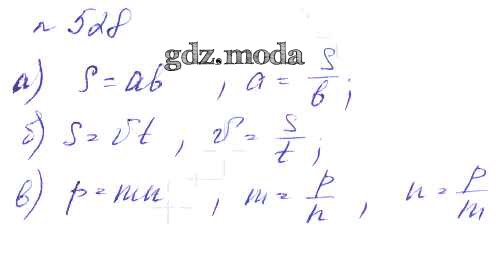 н 528
gdz.moda
а) S = ab , a = S/b ;
б) S = vt , v = S/t ;
в) p = mn , m = p/n , n = p/m